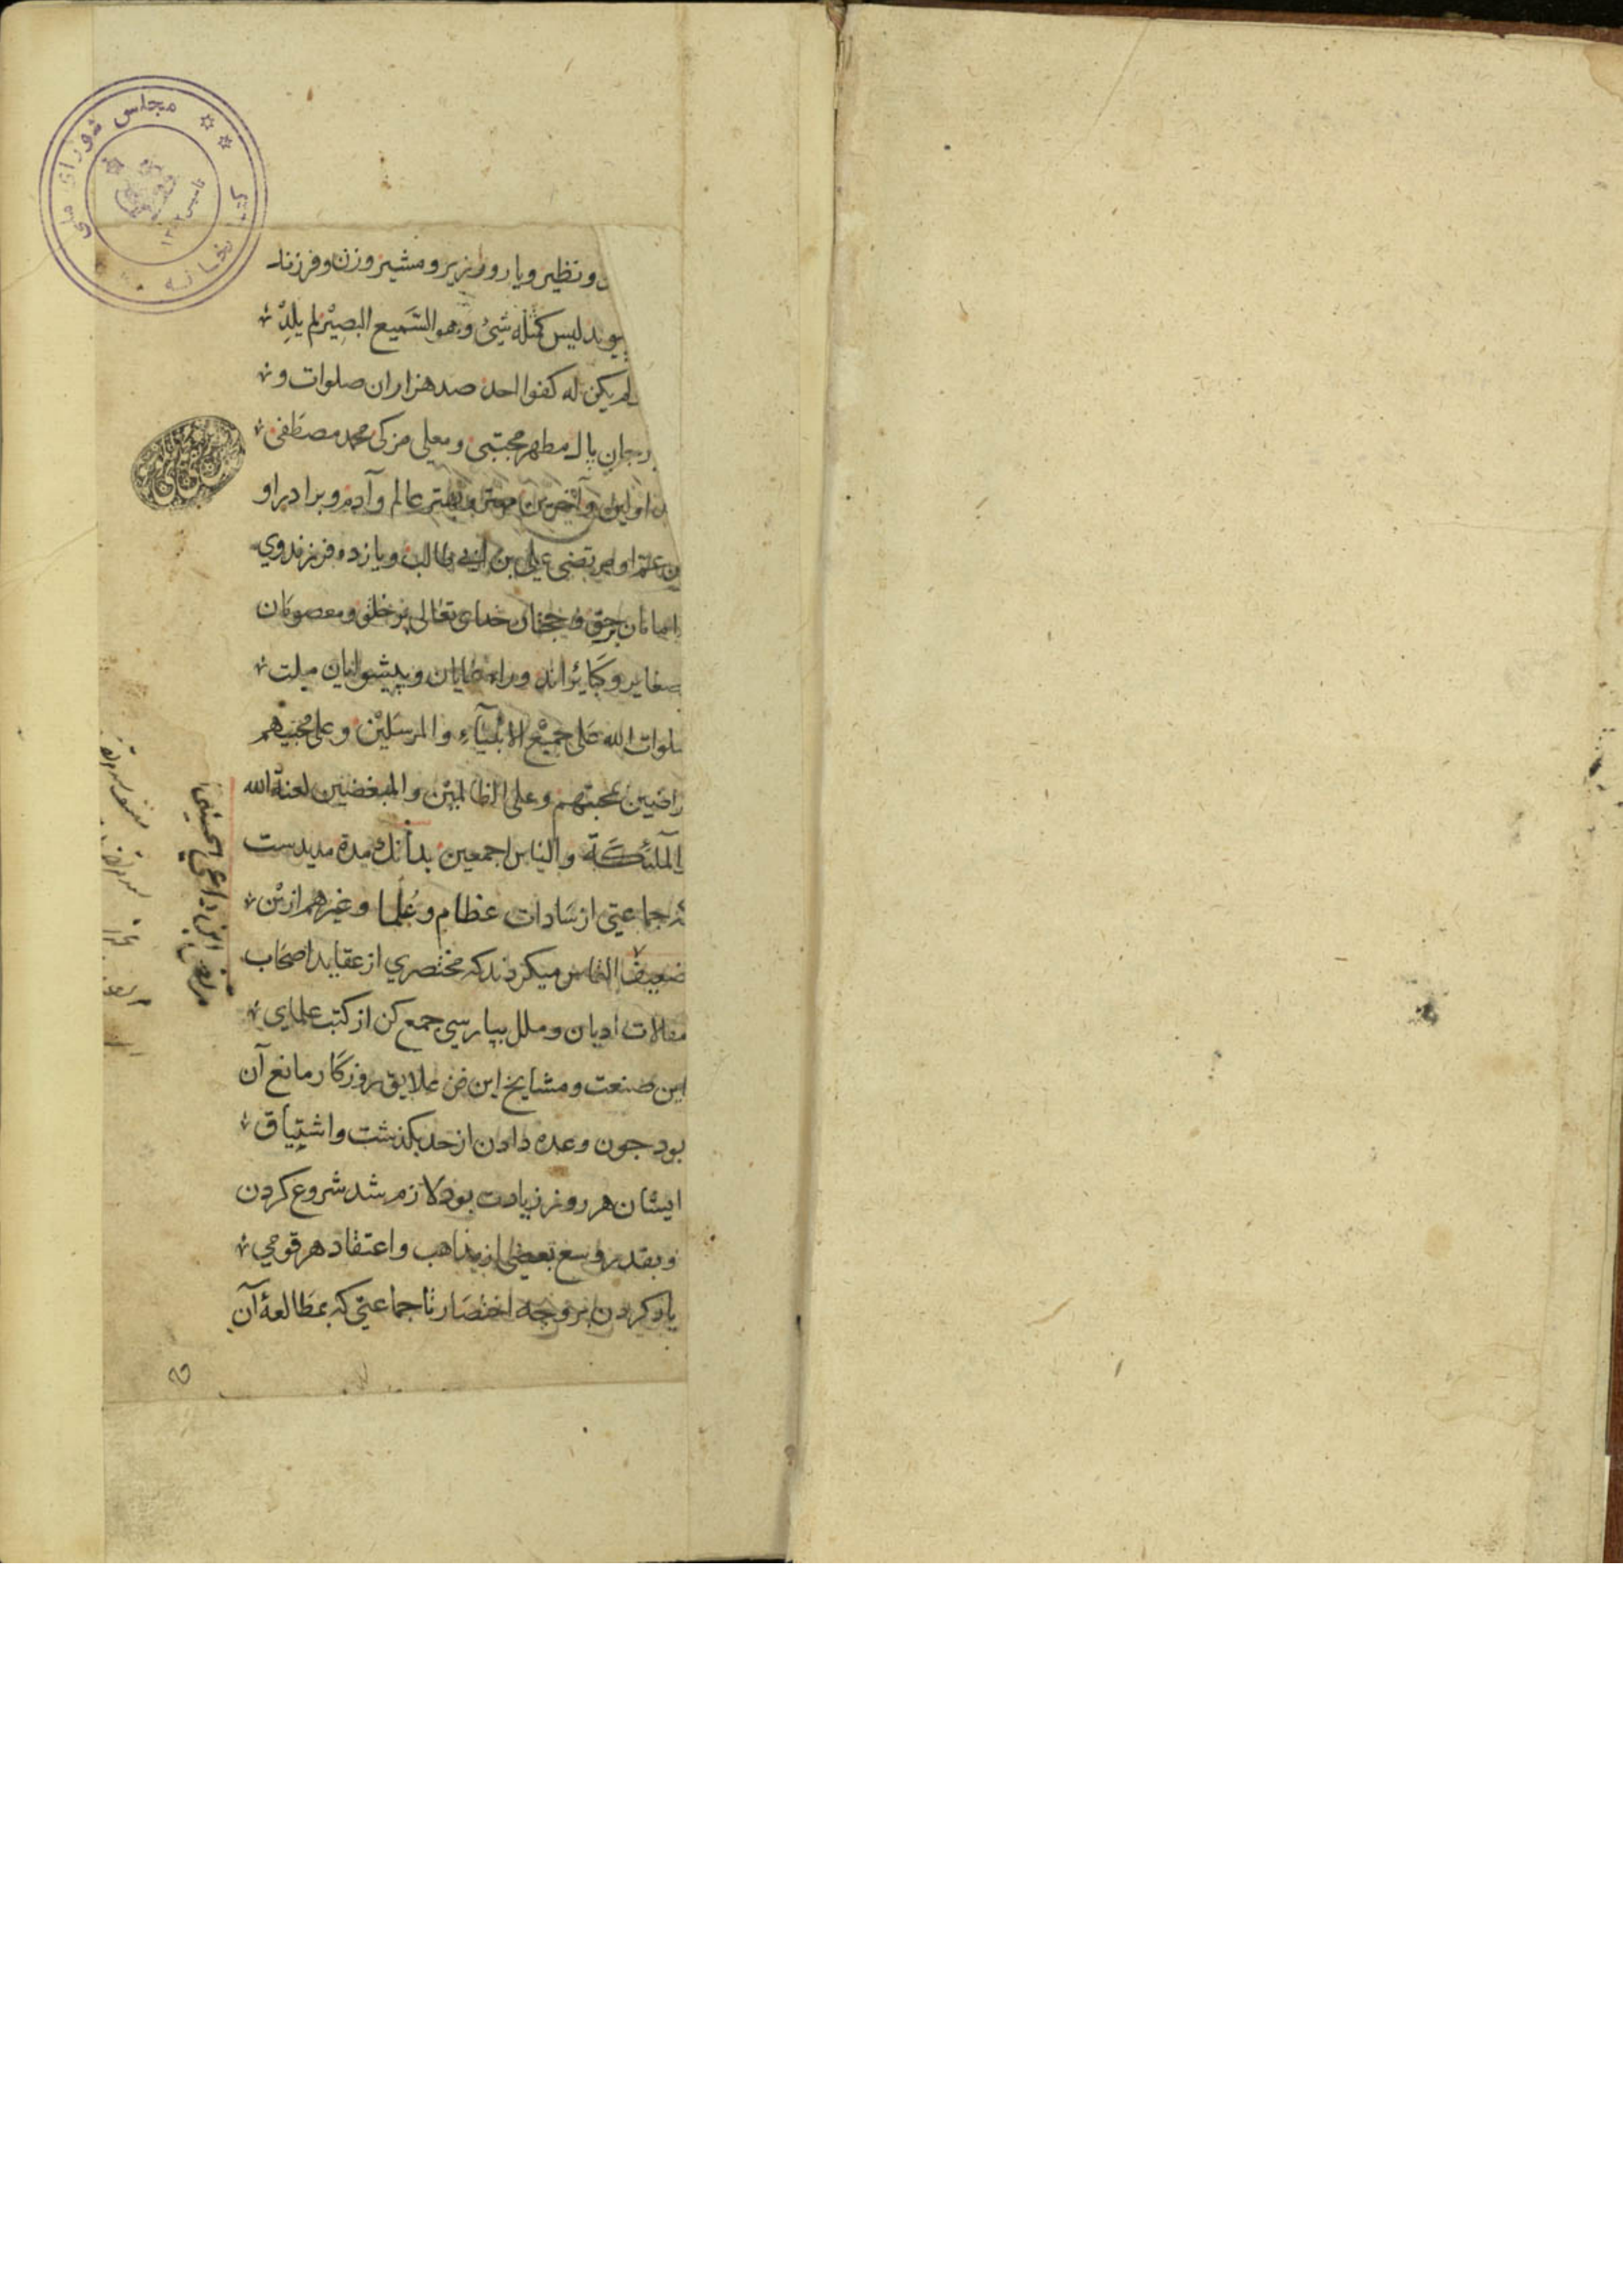 و نظیر و یار و وزیر و مشیر و زن و فرزند
لیس کمثله شیئ و هو السّمیع البصیر لم یلد
و لم یکن له کفوا احد صد هزاران صلوات و
بر جان پاک مطهر مجتبی و معلی مزکی محمد مصطفی
اولین و آخرین مهتر و بهتر عالم و آدم و برادر او
عمّ او مرتضی علی بن ابی طالب و یازده فرزند وی
امامان برحق و حجتان خدای تعالی بر خلق و معصومان
صغایر و کبایراند و راه نمایان و پیشوایان ملت
صلوات الله علی جمیع الانبیآء و المرسلین و علی محبیهم
راضین بمحبتهم و علی الظالمین و المبغضین لعنة الله
و الملئکة والناس اجمعین بدانک مدة مدیدست
که جماعتی از سادات عظام و علما و غیرهم ازین
ضعیف التماس میکردند که مختصری از عقاید اصحاب
مقالات ادیان و ملل بپارسی جمع کن از کتب علمای
این صنعت و مشایخ این فن علایق روزکار مانع آن
بود جون وعده دادن از حد بکذشت و اشتیاق
ایشان هر روز زیادت بود لازم شد شروع کردن
و بقدر وسع بعضی از مذاهب و اعتقاد هر قومی
یاد کردن بر وجه اختصار تا جماعتی که بمطالعهٔ آن
مجلس شورای ملی
کتابخانه
تاسیس ۱۳۰۲